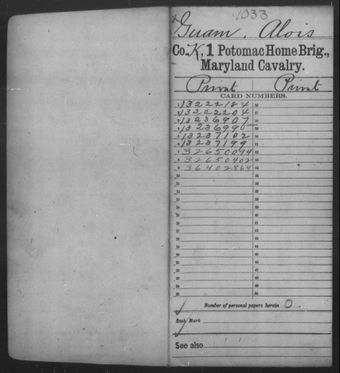 1033
Guam, Alois
Co. K, 1 Potomac Home Brig.,
Maryland Cavalry.
Privat Privat
CARD NUMBERS.
13222184
13222204
13236907
13236990
13237102
13237199
32650094
32650402
36402864
Number of personal papers herein 0
Book Mark
See also